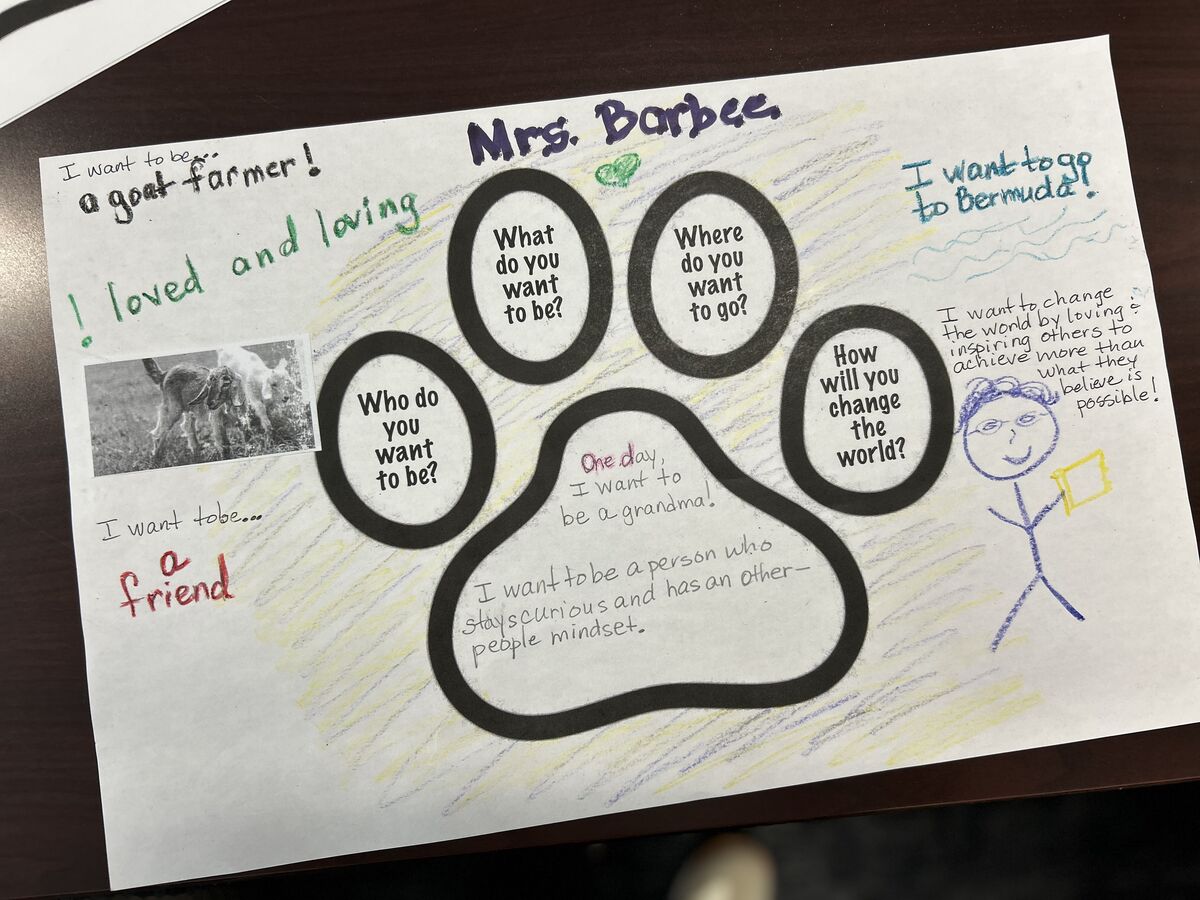 Mrs. Barbee
I want to be...
a goat farmer!
! loved and loving
I want to be...
a
friend
Who do
you
want
to be?
What
do you
want
to be?
Where
do you
want
to go?
How
will you
change
the
world?
One day,
I want to
be a grandma!
I want to be a person who
stays curious and has an other-
people mindset.
I want to go
to Bermuda!
I want to change
the world by loving &
inspiring others to
achieve more than
what they
believe is
possible!